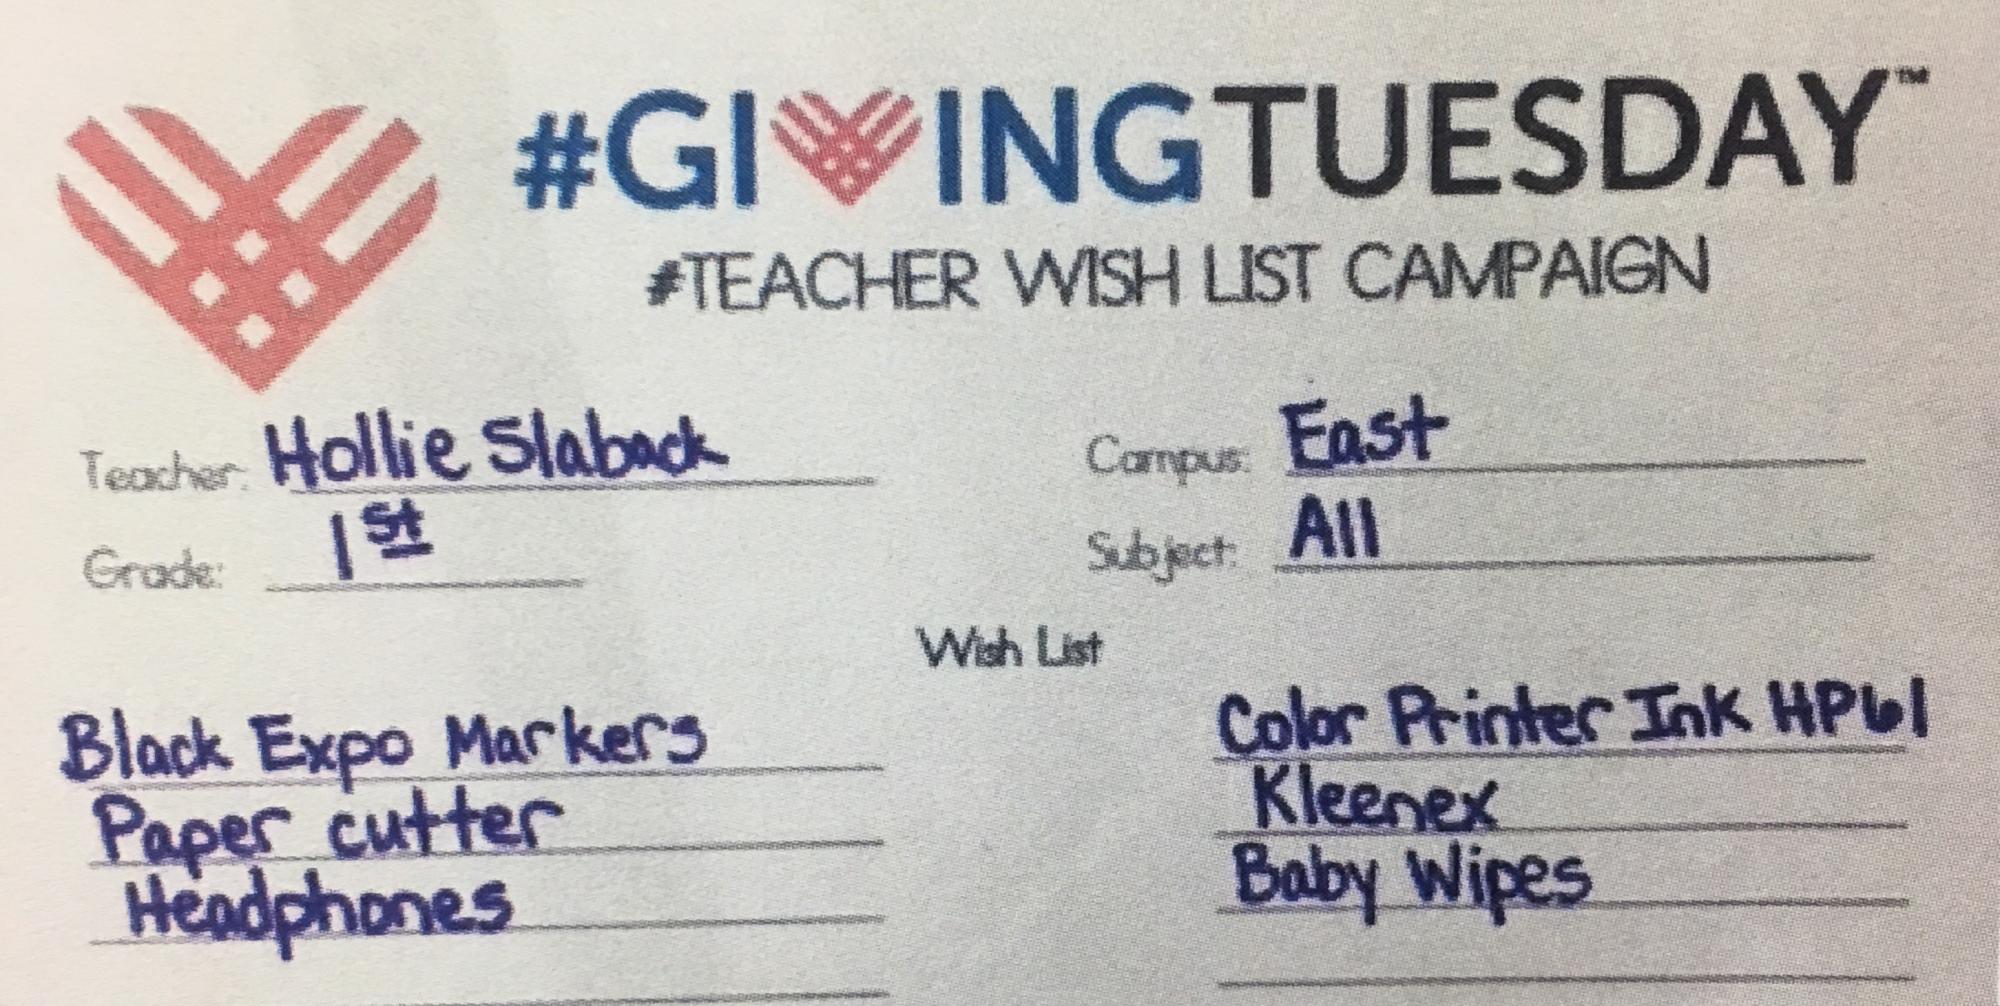 #GIVINGTUESDAY™
#TEACHER WISH LIST CAMPAIGN
Teacher: Hollie Slaback
Campus: East
Grade: 1st
Subject: All
Wish List
Black Expo Markers
Paper cutter
Headphones
Color Printer Ink HP61
Kleenex
Baby Wipes